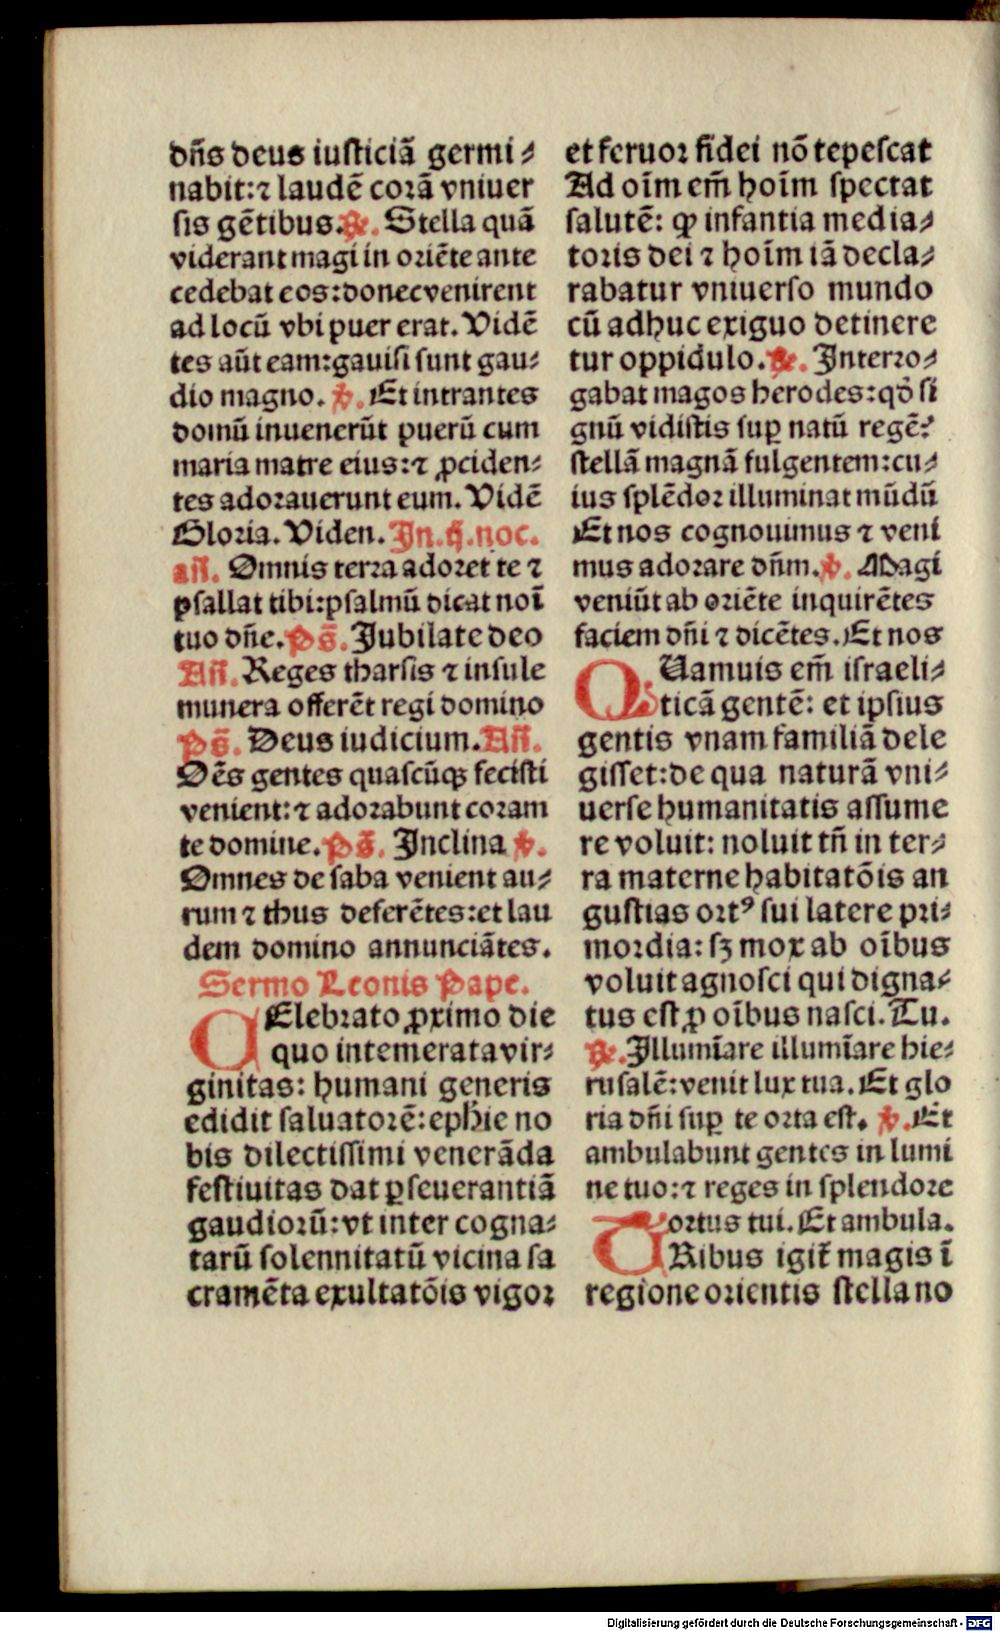 dn̄s deus iusticiā germi⸗
nabit:⁊ laudē corā vniuer
sis gētibus.℟. Stella quā
viderant magi in oriēte ante
cedebat eos:donec venirent
ad locū vbi puer erat. Vidē
tes aūt eam:gauisi sunt gau⸗
dio magno. ℣. Et intrantes
domū inuenerūt puerū cum
maria matre eius:⁊ ꝓciden⸗
tes adorauerunt eum. Vidē
Gloria. Viden. In.ij.noc.
an̄. Omnis terra adoret te ⁊
psallat tibi:psalmū dicat noī
tuo dn̄e. Ps̄. Jubilate deo
An̄. Reges tharsis ⁊ insule
munera offerēt regi domino
Ps̄. Deus iudicium. An̄.
Oēs gentes quascūqꝫ fecisti
venient:⁊ adorabunt coram
te domine. Ps̄. Inclina ℣.
Omnes de saba venient au⸗
rum ⁊ thus deferētes:et lau
dem domino annunciātes.
Sermo Leonis Pape.
CElebrato ꝓximo die
quo intemerata vir⸗
ginitas: humani generis
edidit saluatorē:ephīe no
bis dilectissimi venerāda
festiuitas dat ꝑseuerantiā
gaudiorū:vt inter cogna⸗
tarū solennitatū vicina sa
cramēta exultatōis vigor
et feruor fidei nō tepescat
Ad oīm em̄ hoīm spectat
salutē: ꝙ infantia media⸗
toris dei ⁊ hoīm iā decla⸗
rabatur vniuerso mundo
cū adhuc exiguo detinere
tur oppidulo.℟. Interro⸗
gabat magos herodes:qď si
gnū vidistis suꝑ natū regē?
stellā magnā fulgentem:cu⸗
ius splēdor illuminat mūdū
Et nos cognouimus ⁊ veni
mus adorare dn̄m.℣. Magi
veniūt ab oriēte inquirētes
faciem dn̄i ⁊ dicētes. Et nos
QUamuis em̄ israeli⸗
ticā gentē: et ipsius
gentis vnam familiā dele
gisset:de qua naturā vni⸗
uerse humanitatis assume
re voluit: noluit tn̄ in ter⸗
ra materne habitatōis an
gustias ortꝰ sui latere pri⸗
mordia: sꝫ mox ab oībus
voluit agnosci qui digna⸗
tus est ꝓ oībus nasci. Tu.
℟. Illumīare illumīare hie⸗
rusalē:venit lux tua. Et glo
ria dn̄i suꝑ te orta est. ℣. Et
ambulabunt gentes in lumi
ne tuo:⁊ reges in splendore
ortus tui. Et ambula.
TRibus igit̄ magis ī
regione orientis stella no
Digitalisierung gefördert durch die Deutsche Forschungsgemeinschaft - DFG